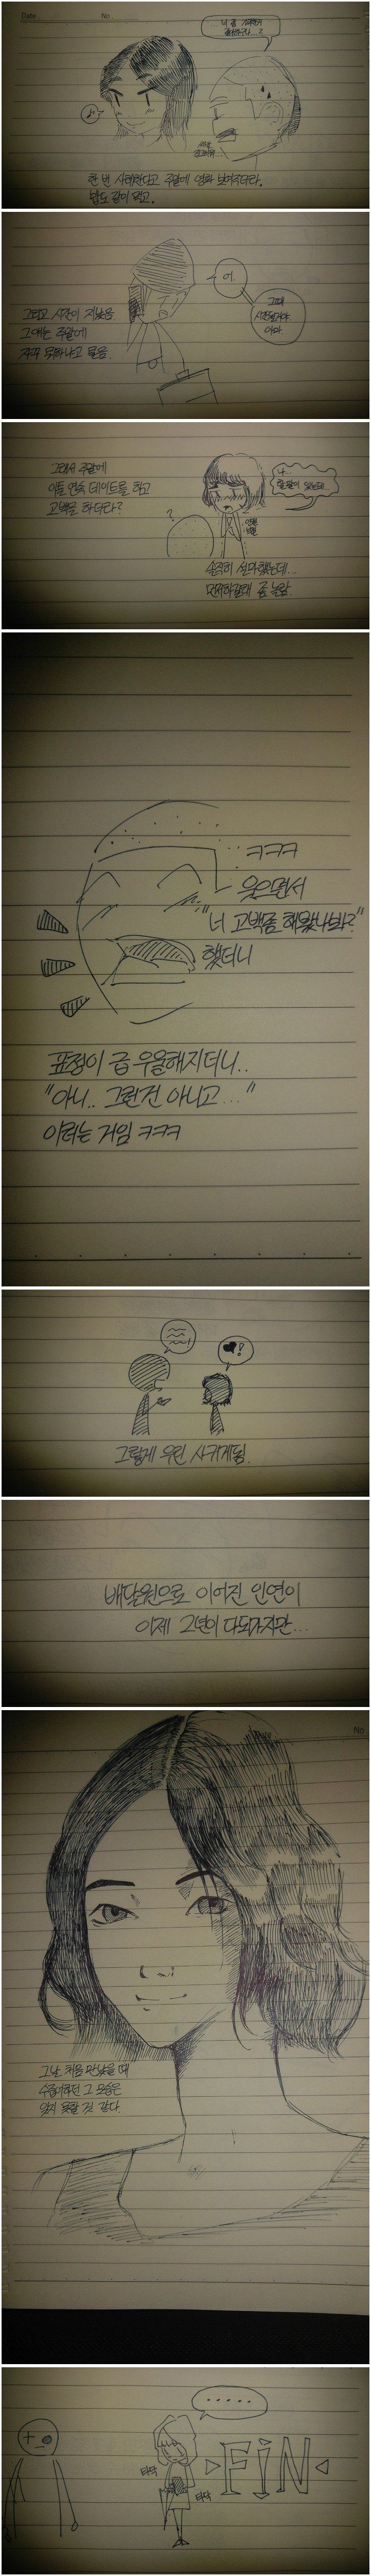 Date
No
너 좀
한 번 사례한다고 주말에 영화 보여주더라.
밥도 같이 먹고.
어.
그때
시간될거야
아마
그리고 시간이 지났음
그애는 주말에
자꾸 뭐하냐고 물음.
그래서 주말에
이틀 연속 데이트를 하고
고백을 하더라?
?
나..
할 말이 있는데..
솔직히 설마했는데...
먼저하길래 좀 놀람.
ㅋㅋㅋ
웃으면서
"너 고백좀 해봤나봐?"
했더니
표정이 급 우울해지더니..
"아니.. 그런건 아니고..."
이러는 거임 ㅋㅋㅋ
♥!
그렇게 우린 사귀게됨.
배달원으로 이어진 인연이
이제 2년이 다되가지만...
No
그날 처음 만났을 때
수줍어하던 그 모습은
잊지 못할 것 같다.
.....
타닥
타닥
FiN